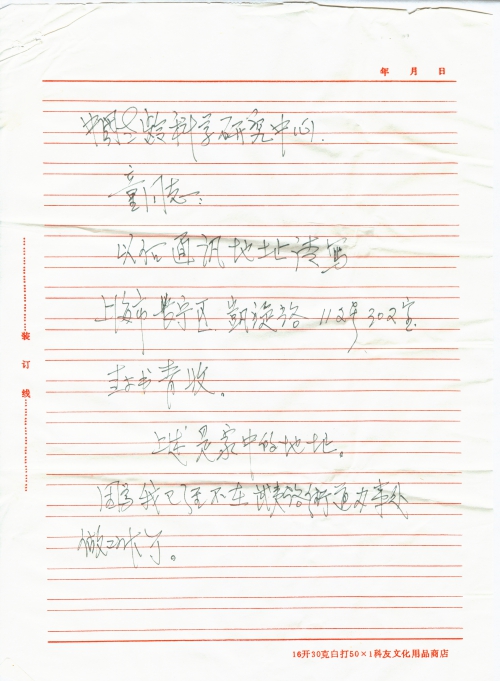 年 月 日
中国老龄科学研究中心.
童同志:
以后通讯地址请写
上海市长宁区凯旋路112号302室
书青收。
上述是家中的地址。
因为我已经不在路街道办事处
做工作了。
装 订 线
16开30克白打50×1科友文化用品商店